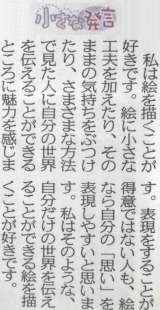 小さな発言
私は絵を描くことが
好きです。絵に小さな
工夫を加えたり、その
ままの気持ちをぶつけ
たり、さまざまな方法
で見た人に自分の世界
を伝えることができる
ところに魅力を感じま
す。表現をすることが
得意ではない人も、絵
なら自分の「思い」を
表現しやすいと思いま
す。私はそのような、
自分だけの世界を伝え
ることができる絵を描
くことが好きです。